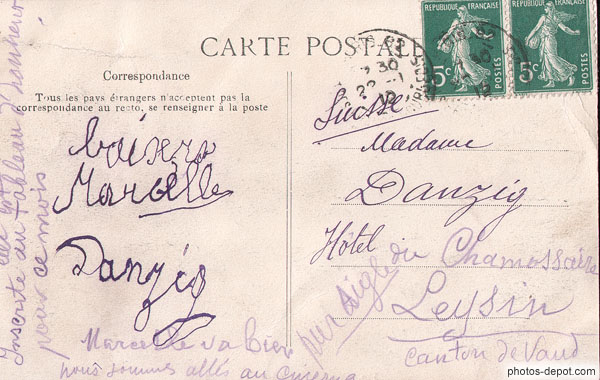 CARTE POSTALE
Correspondance
Tous les pays étrangers n'acceptent pas la
correspondance au recto, se renseigner à la poste
baisers
Marcelle
Danzig
Marcelle va bien
nous sommes allés au
Inscrite au Tableau d'honneur
pour ce mois
RÉPUBLIQUE FRANÇAISE
5c
POSTES
RÉPUBLIQUE FRANÇAISE
5c
POSTES
Suisse
Madame
Danzig
Hôtel du Chamossaire
par Aigle
Leysin
Canton de Vaud
photos-depot.com